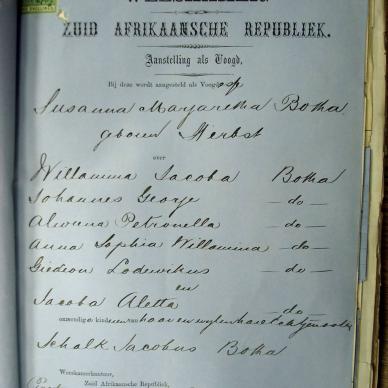 ZUID AFRIKAANSCHE REPUBLIEK.
Aanstelling als Voogd,
Bij deze wordt aangesteld als Voogd
Susanna Margaretha Botha
geboren Herbst
over
Willamina Jacoba Botha
Johannes George — do —
Alwina Petronella — do —
Anna Sophia Willamina — do —
Gideon Lodewikus — do —
en
Jacoba Aletta — do —
onmondige kinderen van haar en wylen haar echtgenoot
Schalk Jacobus Botha
Weeskamerkantoor,
Zuid Afrikaansche Republiek,